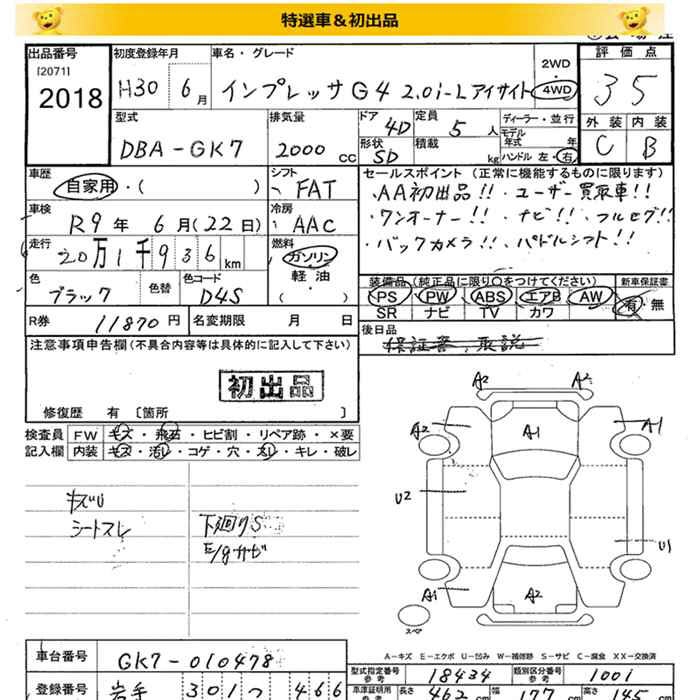 特選車＆初出品
出品番号 初度登録年月 車名・グレード 評価点
[2071]
2018 H30 6月 インプレッサG4 2.0i-Lアイサイト 2WD 4WD 35
外装 内装
C B
型式 排気量 ドア 定員 ディーラー・並行
DBA-GK7 2000cc 4D 5人 モデル年式 年
形状 積載 ハンドル 左・右
5D kg
車歴 シフト セールスポイント（正常に機能するものに限ります）
自家用・（ ） FAT ・AA初出品!!・ユーザー買取車!!
車検 冷房 ・ワンオーナー!!・ナビ!!・フルセグ!!
R9年6月(22日) AAC ・バックカメラ!!・パドルシフト!!
走行 燃料
20万1千936km ガソリン
軽・油
（ ）
色 色替 色コード 装備品（純正品に限り〇をつけてください） 新車保証書
ブラック D4S PS PW ABS エアB AW 有・無
SR ナビ TV カワ
R券 11870円 名変期限 月 日 後日品
保証書、取説
注意事項申告欄（不具合内容等は具体的に記入して下さい）
初出品
修復歴 有 〔箇所 〕
検査員 FW キズ・飛石・ヒビ割・リペア跡・×要
記入欄 内装 キズ・汚れ・コゲ・穴・スレ・キレ・破レ
キズU
シートスレ 下廻りS
E/gサビ
A2 A2
A2 A1 A1
U2
U1
A1 A2
スペア
A－キズ E－エクボ U－凹み W－補修跡 S－サビ C－腐食 XX－交換済
車台番号 GK7-010478 型式指定番号 参考 18434 類別区分番号 参考 1001
登録番号 岩手 301 つ 466 車庫証明用 参考 長さ 462 cm 幅 177 cm 高さ 145 cm